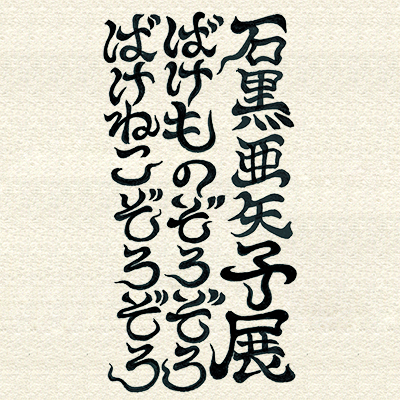 石黒亜矢子展
ばけものぞろぞろ
ばけねこぞろぞろ